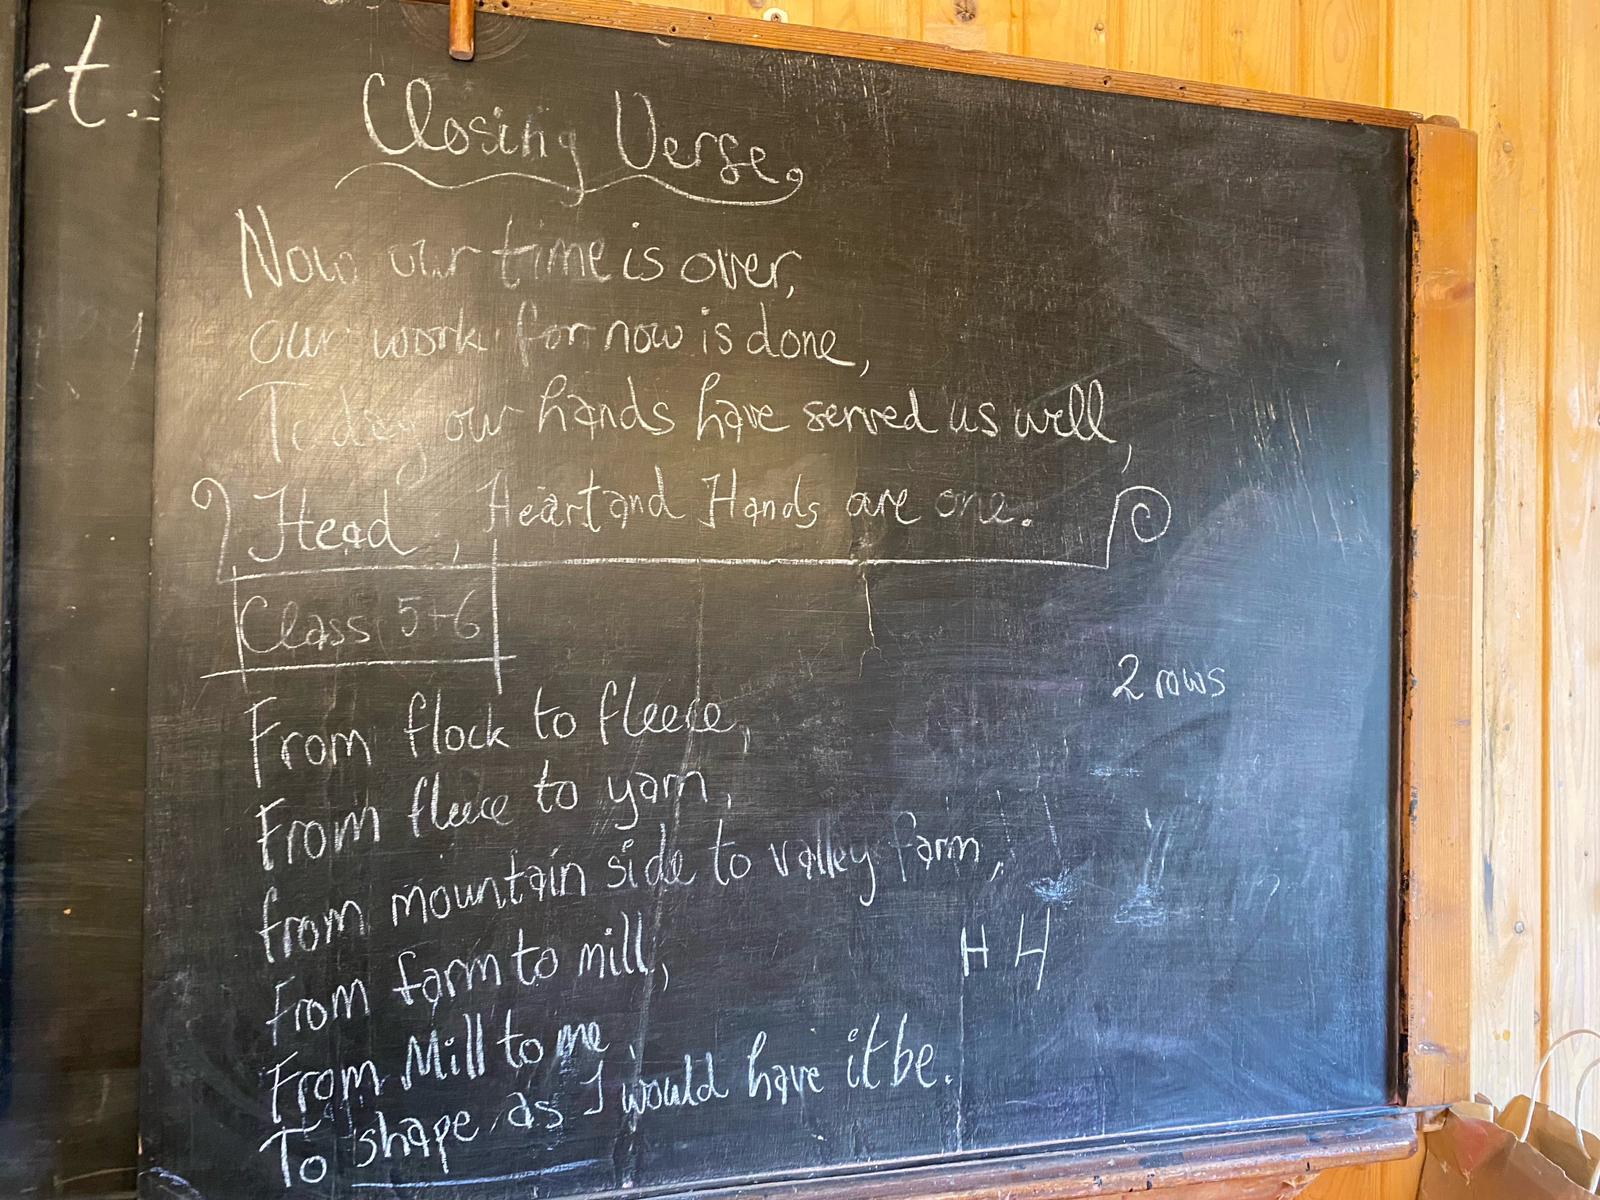 ct.
Closing Verse,
Now our time is over,
our work for now is done,
Today our hands have served us well,
Head, Heart and Hands are one.
Class 5+6
2 rows
From flock to fleece,
From fleece to yarn,
from mountain side to valley farm,
From farm to mill,
H H
From Mill to me
To shape as I would have it be.